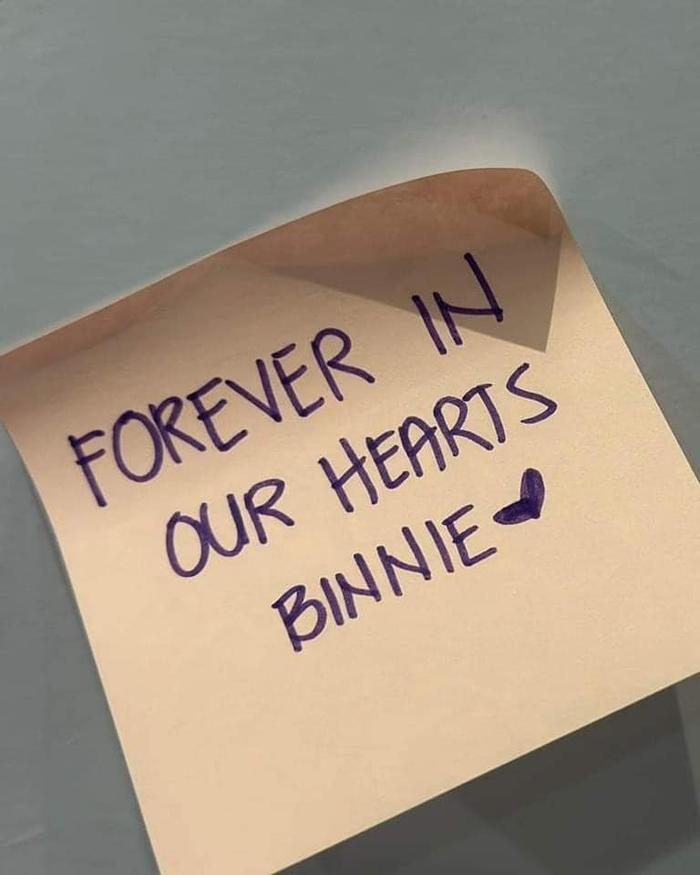 FOREVER IN
OUR HEARTS
BINNIE